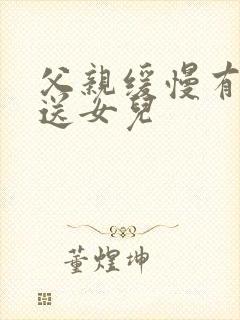 父親緩慢有
送女兒
董煌坤